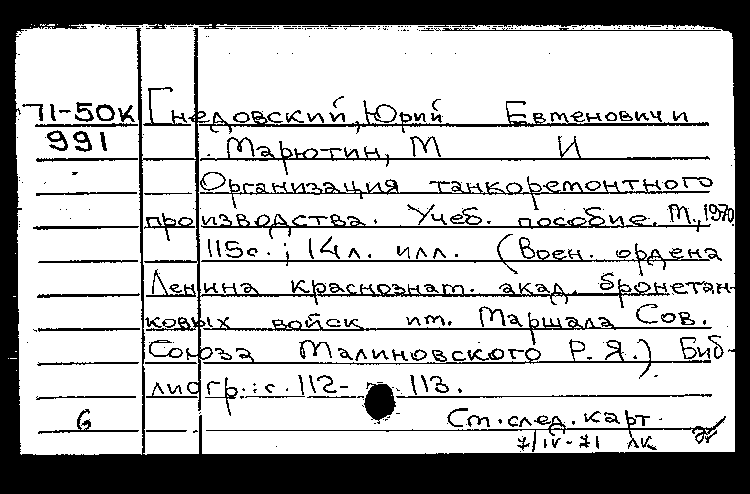 71-50к Гнедовский, Юрий Евменович и
991 Марютин, М И
Организация танкоремонтного
производства. Учеб. пособие. М., 1970
115с.; 14л. илл. (Воен. ордена
Ленина краснознам. акад. бронетан-
ковых войск им. Маршала Сов.
Союза Малиновского Р. Я.) Биб-
лиогр.: с. 112-113.
6 См. след. карт.
7/IV-71 ЛК